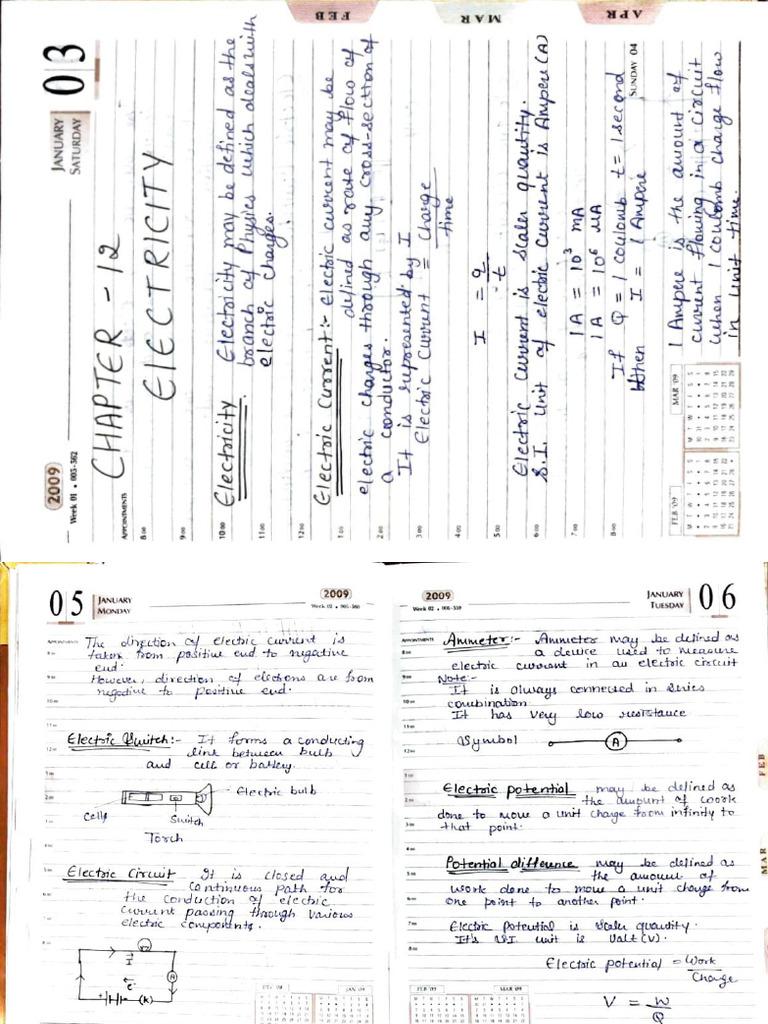 03
JANUARY
SATURDAY
2009
Week 01 • 003-362
FEB
MAR
APR
APPOINTMENTS
CHAPTER - 12
ElECTRICITY
Electricity Electricity may be defined as the
branch of Physics which deals with
electric charges.
Electric Current:- Electric current may be
defined as rate of flow of
electric charges through any cross-section of
a conductor.
It is represented by I
Electric Current = Charge
time
I = q
t
Electric current is scaler quantity.
S.I. Unit of electric current is Ampere (A)
1A = 10³ mA
1A = 10⁶ μA
SUNDAY 04
If Q = 1 coulomb t = 1 second
then I = 1 Ampere
1 Ampere is the amount of
current flowing in a circuit
when 1 coulomb charge flow
in unit time.
FEB '09
MAR '09
05
JANUARY
MONDAY
2009
Week 02 • 005-360
APPOINTMENTS
The direction of electric current is
taken from positive end to negative
end.
However, direction of elections are from
negative to positive end.
Electric Switch:- It forms a conducting
line between bulb
and cell or battery.
Electric bulb
Cells
Switch
Torch
Electric Circuit It is closed and
continuous path for
the conduction of electric
current passing through various
electric components.
I
A
e-
+ - (K)
JAN '09
2009
Week 02 • 006-359
JANUARY
TUESDAY
06
APPOINTMENTS
Ammeter:- Ammeter may be defined as
a device used to measure
electric current in an electric circuit
Note:-
It is always connected in series
combination
It has very low resistance
Symbol A
Electric potential may be defined as
the amount of work
done to move a unit charge from infinity to
that point.
Potential difference may be defined as
the amount of
work done to move a unit charge from
one point to another point.
Electric potential is scaler quantity.
It's S.I unit is Valt (V).
Electric potential = Work
Charge
V = W
Q
FEB '09
MAR '09
FEB
MAR